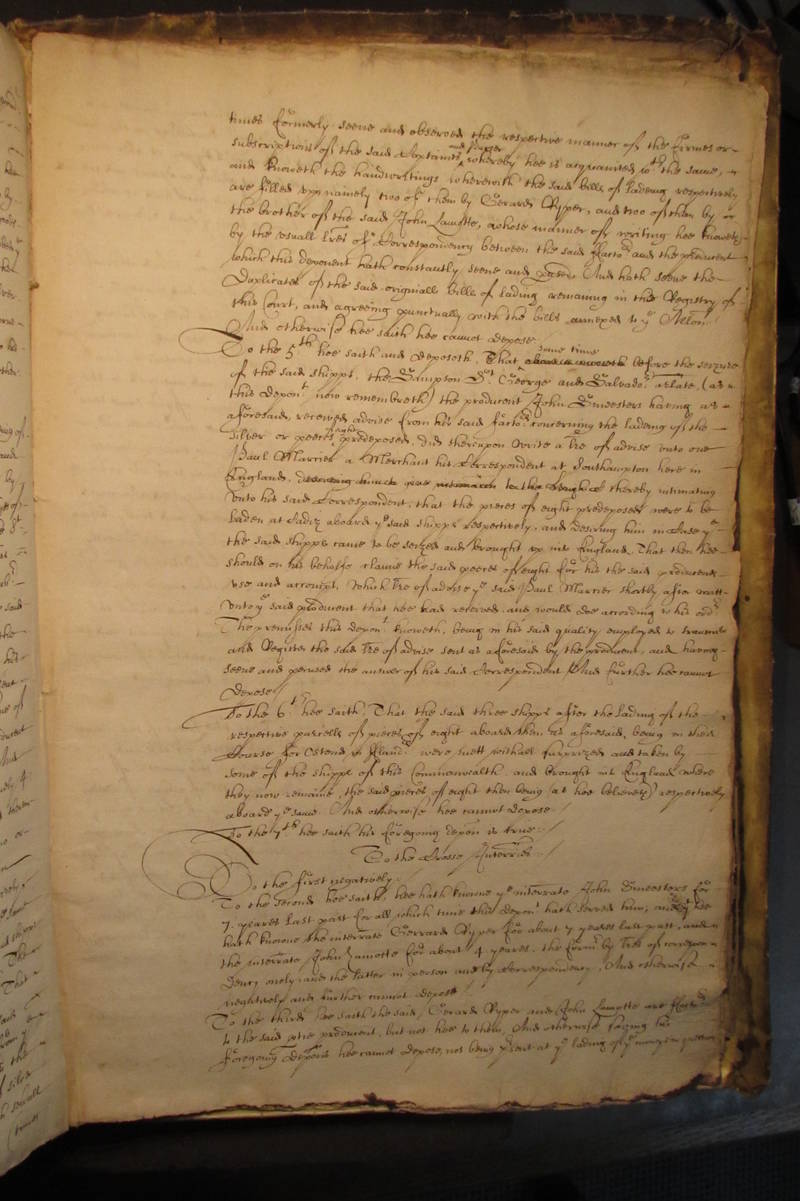 times formerly seene and observed the respective manner of the firmes or
subscriptions of the said Captaines and Paper whereby hee is acquainted wth the same,
and knoweth the handwritings wherewith the said bills of ladeing respectively
are filled upp namely two of them by Gerard Ryper, and two of them by
the brother of the said John Lamotte, whose manner of writing hee knoweth
by the usuall lres of Correspondency between the said Factors and the producent
which this deponent hath constantly seene and And hath seene the
Duplicates of the said originall bills of lading remaining in the Registry of
this Court, and agreeing punctually with the bills annexed to ye Allon.
And otherwise hee saith hee cannot depose
To the 5th hee saith and deposeth, That some time before the seizure
of the said shipps, the Sampson St George and Salvador arlate, (as
this depont now remembreth) the producent John Smeesters having as
aforesaid, received advise from his said factors concerning the ladeing of the
silver or peeces of eight predeposed, did thereupon write a lre of advise unto one
Paul Marrier a Merchant his Correspondent at Southampton here in
England, thereby intimating
unto his said Correspondent, that the pieces of eight predeposed were to be
laden at Cadiz aboard ye said shipps respectively, and desiring him in case yt
the said shipps came to be seized and brought up into England That then hee
should on his behalfe claime the said peeces of eight for his the said producents
use and accompt, Which lre of advise ye said Paul Marrier shortly after
unto ye said producent that hee had received and would doe according to his
The premisses this depont knoweth, being in his said quality employed to
and Register the said lre of advise sent as aforesaid by the producent, and having
seene and perused the answer of his said Correspondent And further hee cannot
depose
To the 6th hee saith, That the said three shipps after the lading of the
respective parcells of pieces of eight aboard them as aforesaid, being in their
Course for Ostend in Fland were mett withall surprized and taken by
some of the shipps of this Commonwealth and brought into England where
they now remaine, the said pieces of eight then being (as hee beleiveth) respectively
aboard ye same. And otherwise hee cannot depose.
To the 7th hee saith his foregoing depon is true.
To the Crosse Interries.
To the first negatively.
To the second hee saith, hee hath knowne ye interrate John Smeesters for
7 yeares last past for all which time this depont hath served him, and yt hee
hath knowne the interrate Gerrard Ryper for about 7 yeares last past, and
the interrate John Lamotte for about 4 yeares, the formr by lres of correspon
dency onely and the latter in person and by Correspondency, And otherwise
negatively and further cannot depose
To the third hee saith the said Gerard Ryper and John Lamotte are Factors
to the said producent, but not hee to them, And otherwise saving his
foregoing depons hee cannot depose, not being prsent at ye lading of ye moneys in question